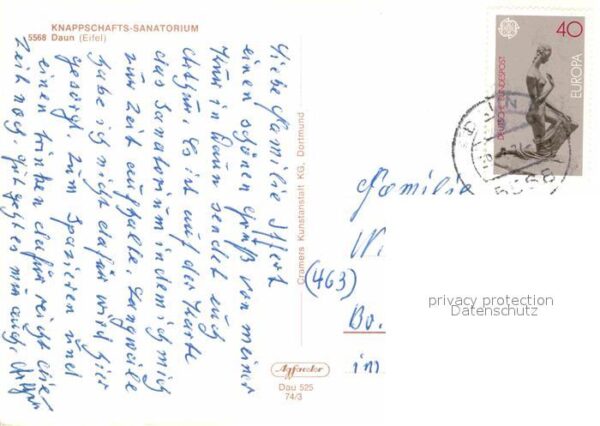 KNAPPSCHAFTS-SANATORIUM
5568 Daun (Eifel)
Liebe Familie
einen schönen Gruß von meiner
Kur in Daun sendet euch
Es ist auf der Karte
das Sanatorium in dem ich mich
zur Zeit aufhalte. Langweile
habe ich nicht dafür wird hier
gesorgt. Zum Spazieren und
einen trinken dafür reicht die
Zeit noch, gut geht es mir auch,
Cramers Kunstanstalt KG, Dortmund
Agfacolor
Dau 525
74/3
40
DEUTSCHE BUNDESPOST
EUROPA
5568
Familie
W.
(463)
Bo.
im
privacy protection
Datenschutz